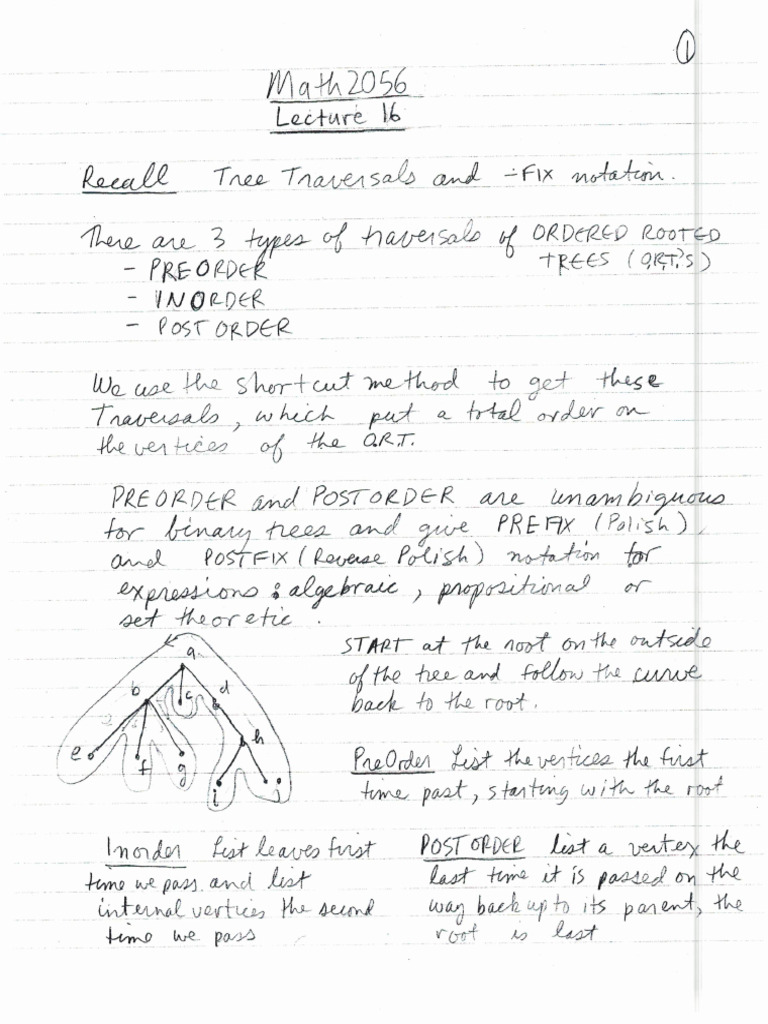 1
Math 2056
Lecture 16
Recall Tree Traversals and -FIX notation.
There are 3 types of traversals of ORDERED ROOTED
TREES (O.R.T.'s)
- PREORDER
- INORDER
- POSTORDER
We use the shortcut method to get these
Traversals, which put a total order on
the vertices of the O.R.T.
PREORDER and POSTORDER are unambiguous
for binary trees and give PREFIX (Polish)
and POSTFIX (Reverse Polish) notation for
expressions: algebraic, propositional or
set theoretic.
a
b
c
d
e
f
g
h
i
j
START at the root on the outside
of the tree and follow the curve
back to the root.
PreOrder List the vertices the first
time past, starting with the root
Inorder List leaves first
time we pass and list
internal vertices the second
time we pass
POSTORDER list a vertex the
last time it is passed on the
way back up to its parent, the
root is last